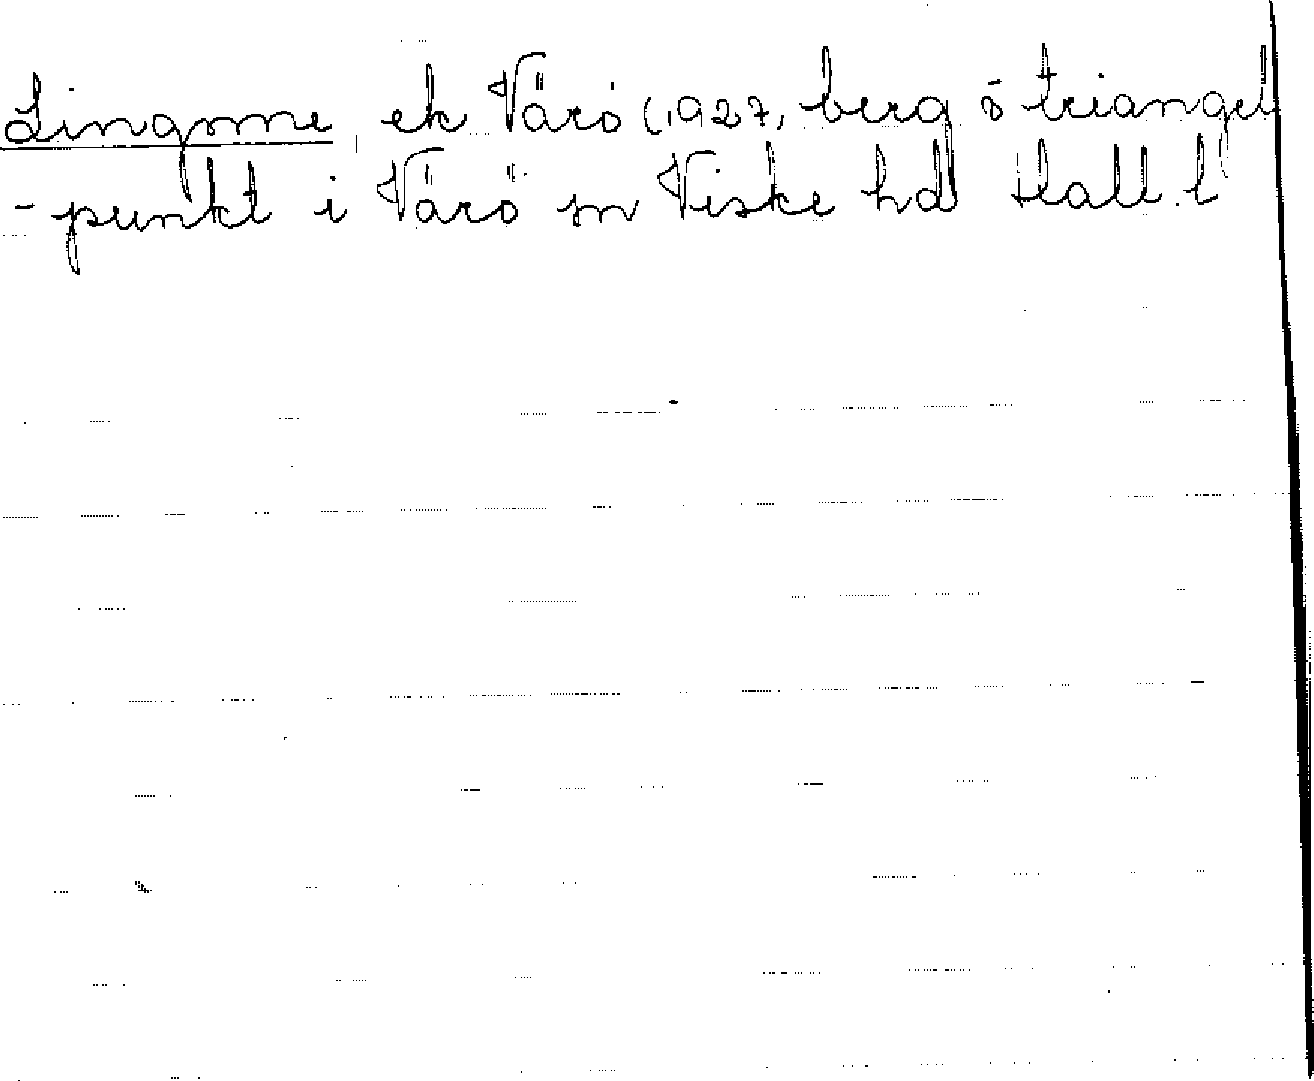 Lingome ek Värö (1927, berg o triangel
-punkt i Värö sn Viske hd Hall. l